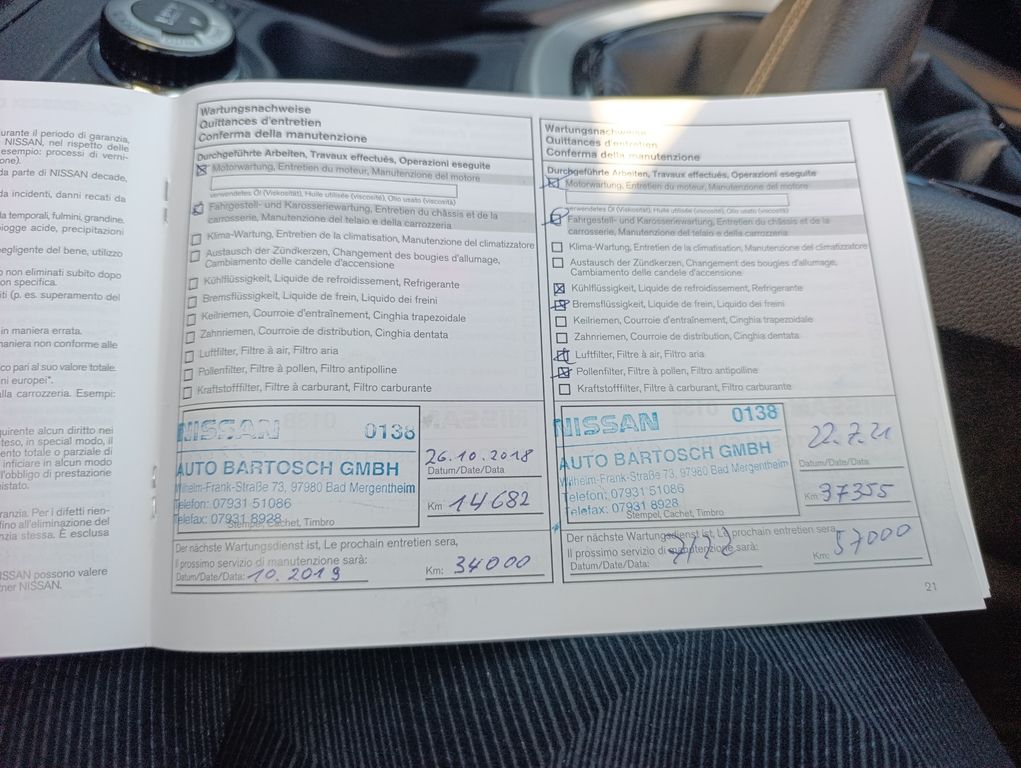 urante il periodo di garanzia,
NISSAN, nel rispetto delle
esempio: processi di verni-
one).
da parte di NISSAN decade,
da incidenti, danni recati da
da temporali, fulmini, grandine,
piogge acide, precipitazioni
negligente del bene, utilizzo
non eliminati subito dopo
on specifica.
iti (p. es. superamento del
in maniera errata.
maniera non conforme alle
co pari al suo valore totale.
ni europei*.
alla carrozzeria. Esempi:
quirente alcun diritto nei
teso, in special modo, il
ento totale o parziale di
inficiare in alcun modo
l'obbligo di prestazione
istato.
ranzia. Per i difetti rien-
fino all'eliminazione del
nzia stessa. È esclusa
ISSAN possono valere
tner NISSAN.
Wartungsnachweise
Quittances d'entretien
Conferma della manutenzione
Durchgeführte Arbeiten, Travaux effectués, Operazioni eseguite
Motorwartung, Entretien du moteur, Manutenzione del motore
verwendetes Öl (Viskosität), Huile utilisée (viscosité), Olio usato (viscosità)
Fahrgestell- und Karosseriewartung, Entretien du châssis et de la
carrosserie, Manutenzione del telaio e della carrozzeria
Klima-Wartung, Entretien de la climatisation, Manutenzione del climatizzatore
Austausch der Zündkerzen, Changement des bougies d'allumage,
Cambiamento delle candele d'accensione
Kühlflüssigkeit, Liquide de refroidissement, Refrigerante
Bremsflüssigkeit, Liquide de frein, Liquido dei freini
Keilriemen, Courroie d'entraînement, Cinghia trapezoidale
Zahnriemen, Courroie de distribution, Cinghia dentata
Luftfilter, Filtre à air, Filtro aria
Pollenfilter, Filtre à pollen, Filtro antipolline
Kraftstofffilter, Filtre à carburant, Filtro carburante
NISSAN 0138
AUTO BARTOSCH GMBH
Wilhelm-Frank-Straße 73, 97980 Bad Mergentheim
Telefon: 07931 51086
Telefax: 07931 8928
Stempel, Cachet, Timbro
26.10.2018
Datum/Date/Data
Km 14682
Der nächste Wartungsdienst ist, Le prochain entretien sera,
Il prossimo servizio di manutenzione sarà:
Datum/Date/Data: 10.2019 Km: 34000
Wartungsnachweise
Quittances d'entretien
Conferma della manutenzione
Durchgeführte Arbeiten, Travaux effectués, Operazioni eseguite
Motorwartung, Entretien du moteur, Manutenzione del motore
verwendetes Öl (Viskosität), Huile utilisée (viscosité), Olio usato (viscosità)
Fahrgestell- und Karosseriewartung, Entretien du châssis et de la
carrosserie, Manutenzione del telaio e della carrozzeria
Klima-Wartung, Entretien de la climatisation, Manutenzione del climatizzatore
Austausch der Zündkerzen, Changement des bougies d'allumage,
Cambiamento delle candele d'accensione
Kühlflüssigkeit, Liquide de refroidissement, Refrigerante
Bremsflüssigkeit, Liquide de frein, Liquido dei freini
Keilriemen, Courroie d'entraînement, Cinghia trapezoidale
Zahnriemen, Courroie de distribution, Cinghia dentata
Luftfilter, Filtre à air, Filtro aria
Pollenfilter, Filtre à pollen, Filtro antipolline
Kraftstofffilter, Filtre à carburant, Filtro carburante
NISSAN 0138
AUTO BARTOSCH GMBH
Wilhelm-Frank-Straße 73, 97980 Bad Mergentheim
Telefon: 07931 51086
Telefax: 07931 8928
Stempel, Cachet, Timbro
22.7.21
Datum/Date/Data
Km 37355
Der nächste Wartungsdienst ist, Le prochain entretien sera,
Il prossimo servizio di manutenzione sarà:
Datum/Date/Data: Km: 57000
21